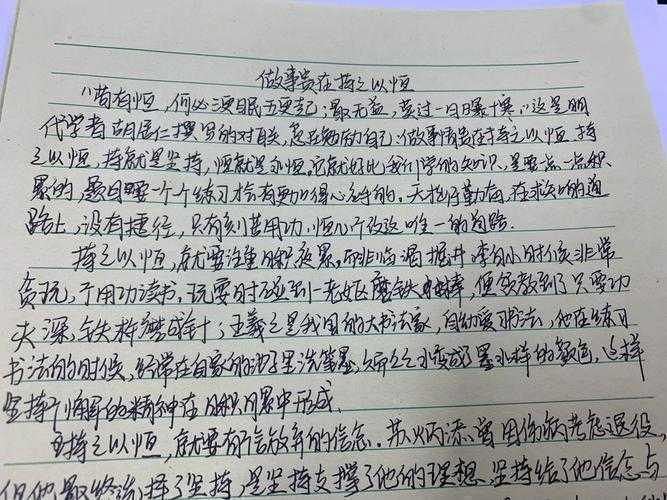 做事贵在持之以恒
"苟有恒，何必三更眠五更起；最无益，莫过一日曝十寒。"这是明
代学者胡居仁撰写的对联，意在勉励自己：做事情贵在持之以恒。持
之以恒，持就是坚持，恒就是永恒，它就好比我们学的知识，是要一点一点积
累的，题目要一个个练习才会有更加得心应手的。天抵行勤为，在求知的道
路上，没有捷径，只有刻苦用功，恒心不改这唯一的道路。
持之以恒，就要注重日积月累，而非临渴掘井。李白小时候非常
贪玩，不用功读书。玩耍时碰到一老妪磨铁杵，便领教到了只要功
夫深，铁杵磨成针；王羲之是我国的大书法家，自幼爱习书法，他在练习
书法的时候，经常在自家的池子里洗笔墨，久而久之水变成了墨水样的颜色，这样
坚持不懈的精神在日积月累中形成。
持之以恒，就要有不言放弃的信念。苏炳添曾因伤病考虑退役，
但他最终选择了坚持，是坚持支撑了他的理想，坚持给了他信念与